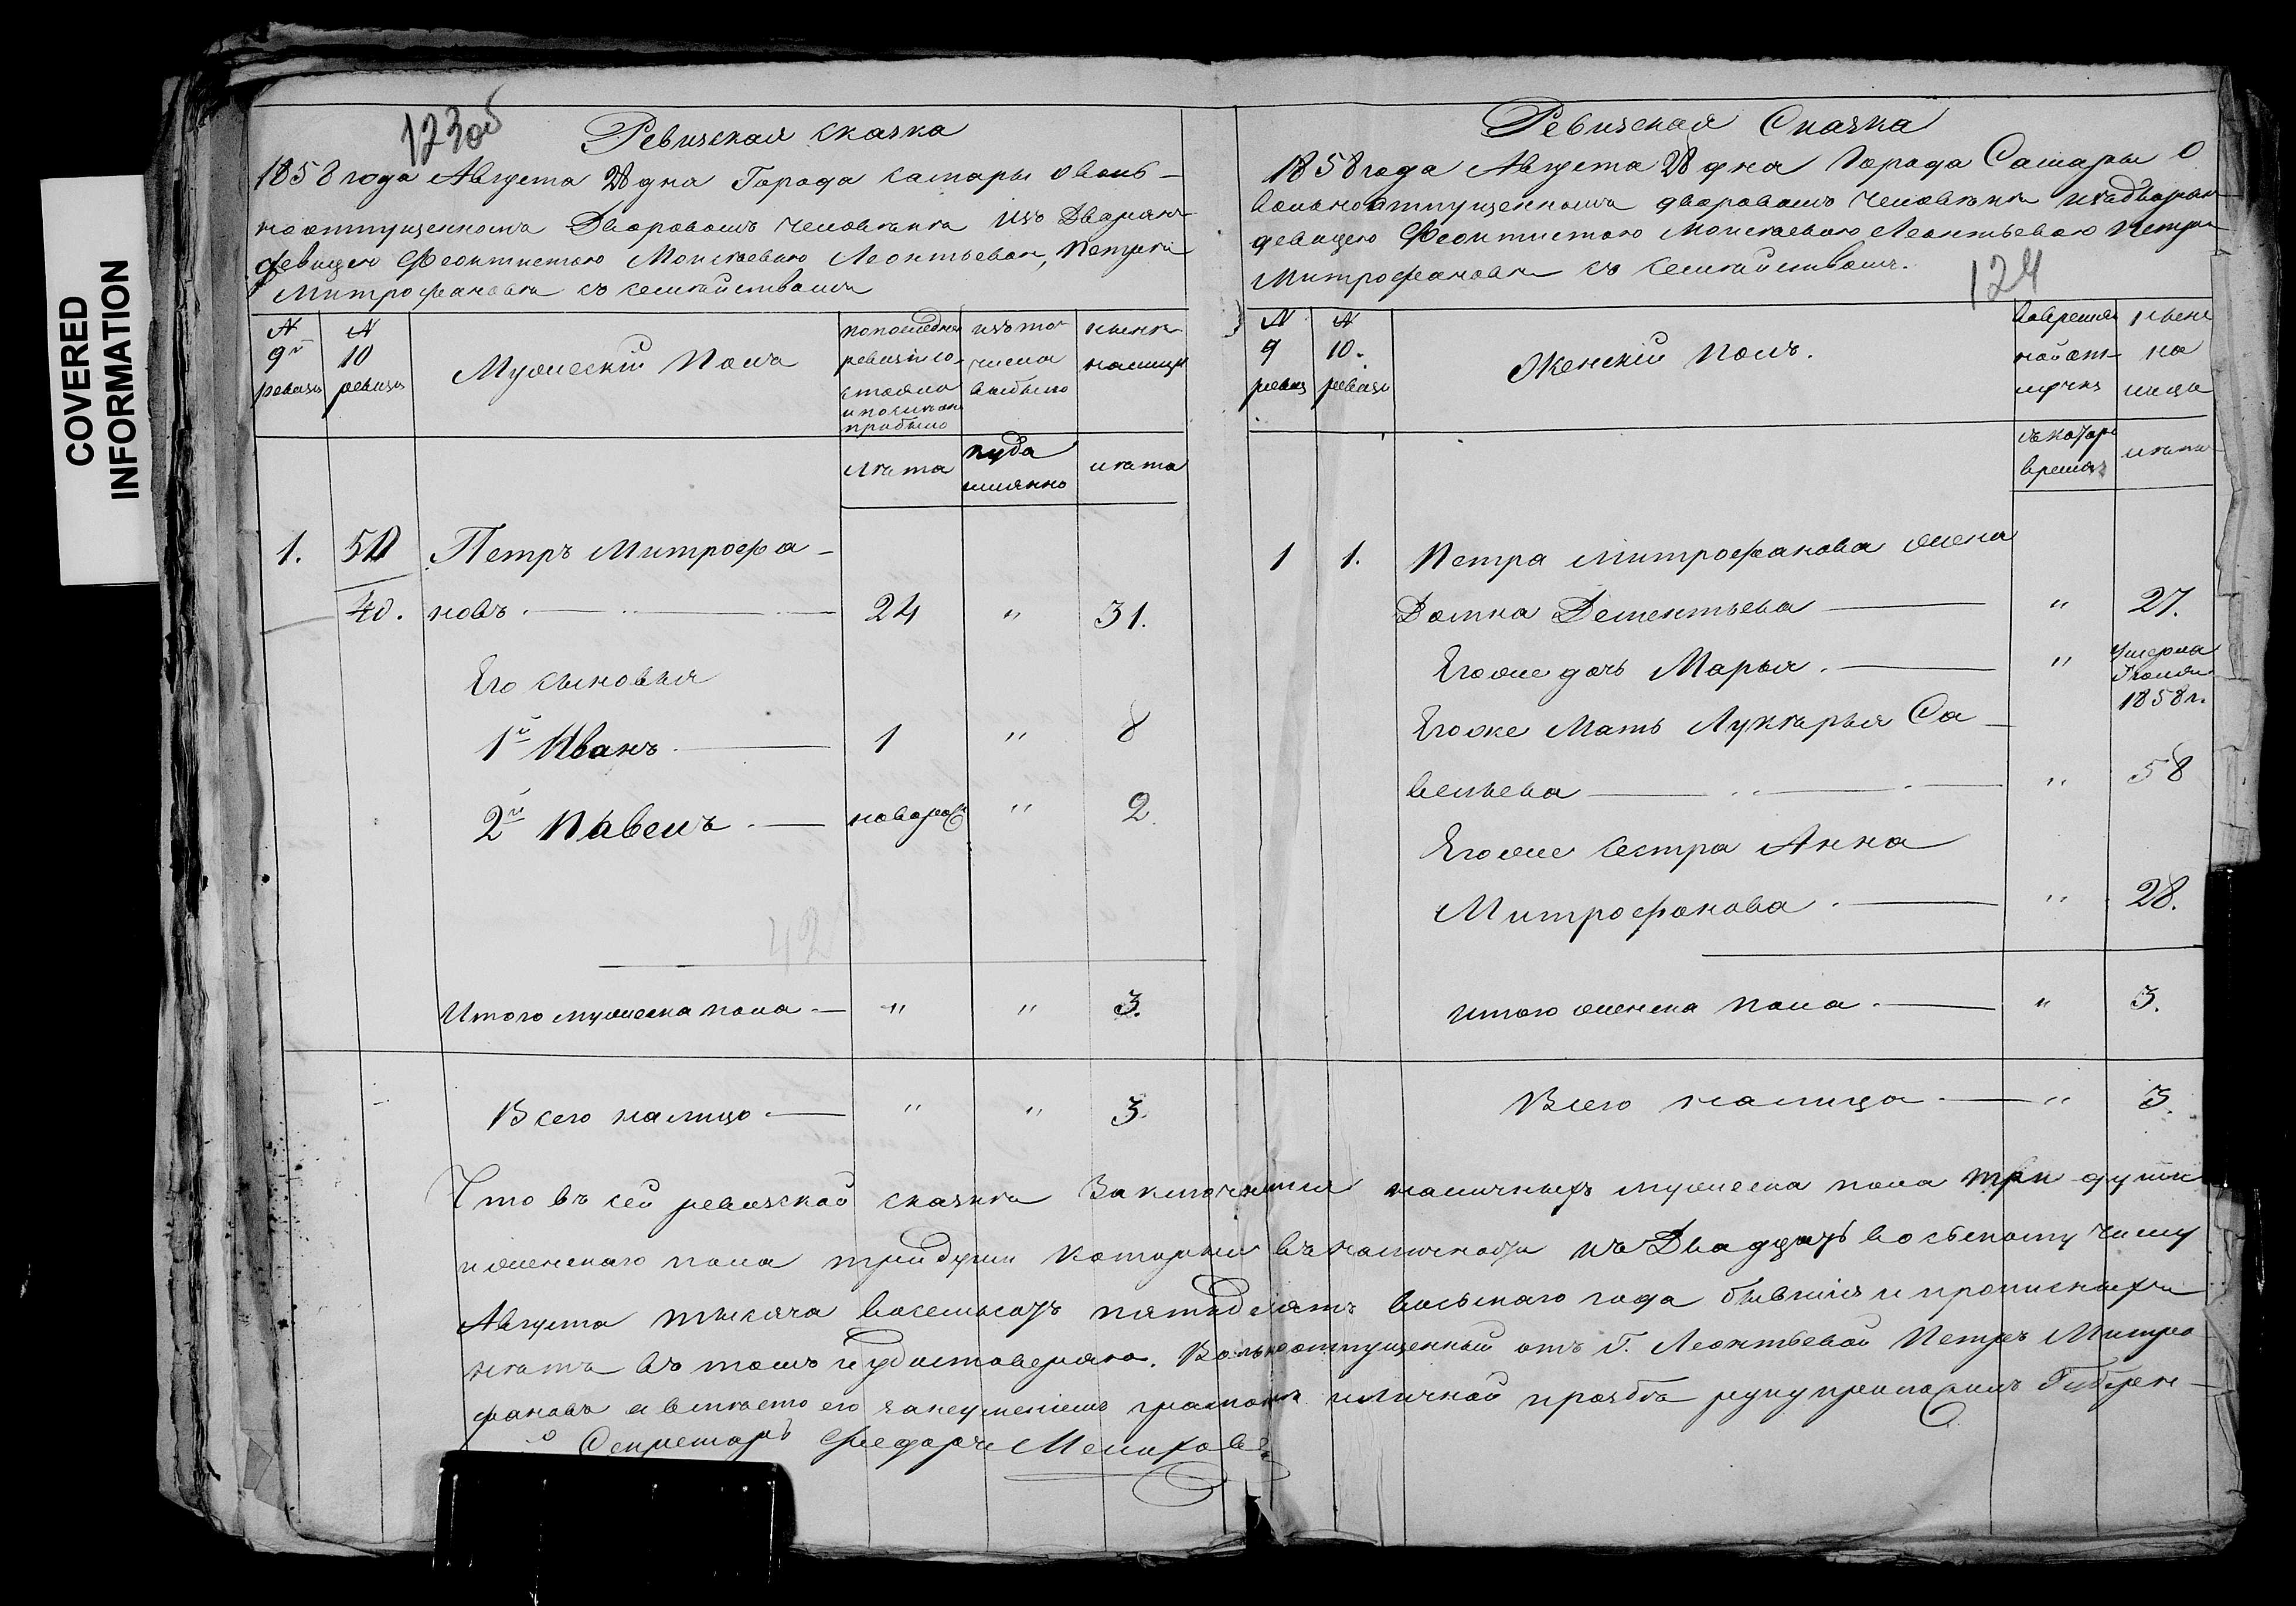 COVERED
INFORMATION
123об
Ревизская сказка
1858 года Августа 28 дня Города Самары о воль-
ноотпущенномъ Дворовомъ человѣкѣ изъ Дворянъ
девицею Феоктистою Моисѣевною Леонтьевой, Петрѣ
Митрофановѣ съ семѣйствомъ
№ 9й ревизи
№ 10 ревизи
Мужескій Полъ
по последней ревизіи состояло и после того прибыло
изъ того числа выбыло
нынѣ налицо
лѣта
куда имянно
лѣта
1. 51 Петръ Митрофа-
40. новъ 24 " 31.
Его сыновья
1й Иванъ 1 " 8
2й Павелъ новорож " 2
42
Итого мужеска пола " " 3.
Всего налицо " " 3.
Ревизская Сказка
1858 года Августа 28 дня Города Самары О
вольноотпущенномъ дворовомъ человѣкѣ изъ дворян
девицею Феоктистою Моисѣевною Леонтьевою Петре
Митрофановѣ съ семѣйствомъ.
124
№ 9 ревиз
№ 10. ревизи
Женскій полъ.
во временной отлучкѣ
ныне на лицо
съ котораго времени
лѣта
1 1. Петра Митрофанова жена
Домна Дементьева " 27.
Его же дочь Марья. " Умерла
1858 г.
Его же Мать Лукѣрья Са-
вельева " 58
Его же сестра Анна
Митрофанова " 28.
итого женска пола " 3.
Всего налицо " 3.
Что въ сей ревизской сказкѣ Заключается наличныхъ мужеска пола три души
и женскаго пола три души которыи въ наличности къ Двадцать восьмому числу
Августа тысяча восемьсотъ пятидесятъ восьмаго года бывшія и прописныхъ
нѣтъ въ томъ и удостоверяю. Вольноотпущенный отъ Г. Леонтьевой Петръ Митро
фановъ а вместо его за неумѣніемъ грамоте и личной прозбѣ руку приложилъ Губерн-
Секретарь Федоръ Мелиховъ